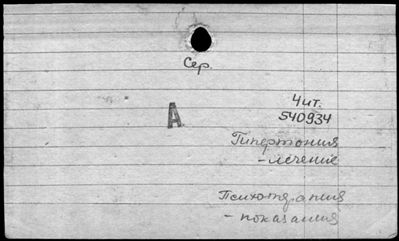 Сер.
Чит.
540934
А
Гипертония
- лечение
Психотерапия
- показания